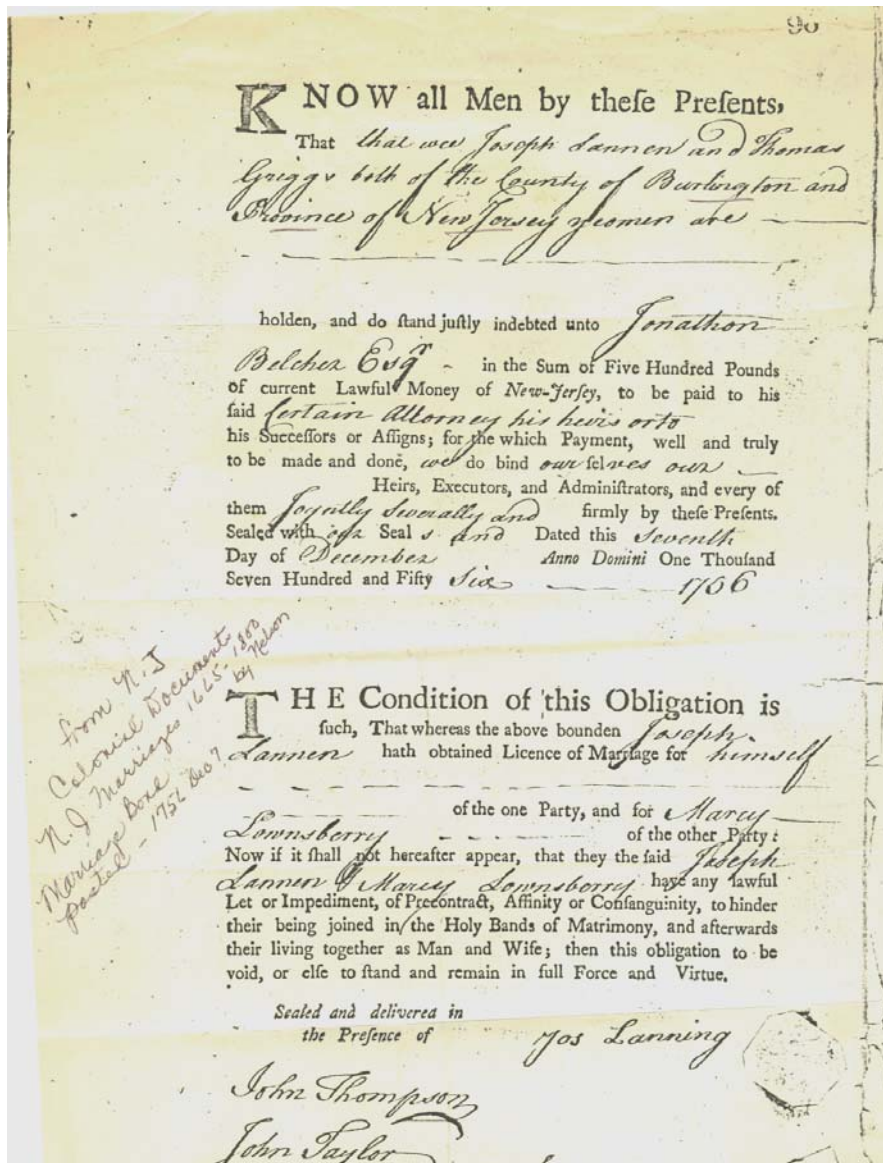 96
KNOW all Men by theſe Preſents,
That that wee Joseph Lannen and Thomas
Griggs both of the County of Burlington and
Province of New Jersey yeomen are
holden, and do ſtand juſtly indebted unto Jonathon
Belcher Esqr in the Sum of Five Hundred Pounds
of current Lawful Money of New-Jerſey, to be paid to his
ſaid Certain Attorney his heirs or to
his Succeſſors or Aſſigns; for the which Payment, well and truly
to be made and done, we do bind our ſelves our
Heirs, Executors, and Adminiſtrators, and every of
them Joyntly Severally and firmly by theſe Preſents.
Sealed with our Seal s and Dated this Seventh
Day of December Anno Domini One Thouſand
Seven Hundred and Fifty Six 1756
from N. J
Colonial Documents
N. J Marriages 1665-1800
by Nelson
Marriage Bond
posted - 1756 Dec 7
THE Condition of this Obligation is
ſuch, That whereas the above bounden Joseph
Lannen hath obtained Licence of Marriage for himself
of the one Party, and for Marcy
Lownsberry of the other Party:
Now if it ſhall not hereafter appear, that they the ſaid Joseph
Lannen & Marcy Lownsberry have any lawful
Let or Impediment, of Precontract, Affinity or Conſanguinity, to hinder
their being joined in the Holy Bands of Matrimony, and afterwards
their living together as Man and Wife; then this obligation to be
void, or elſe to ſtand and remain in full Force and Virtue.
Sealed and delivered in
the Preſence of Jos Lanning
John Thompson
John Taylor